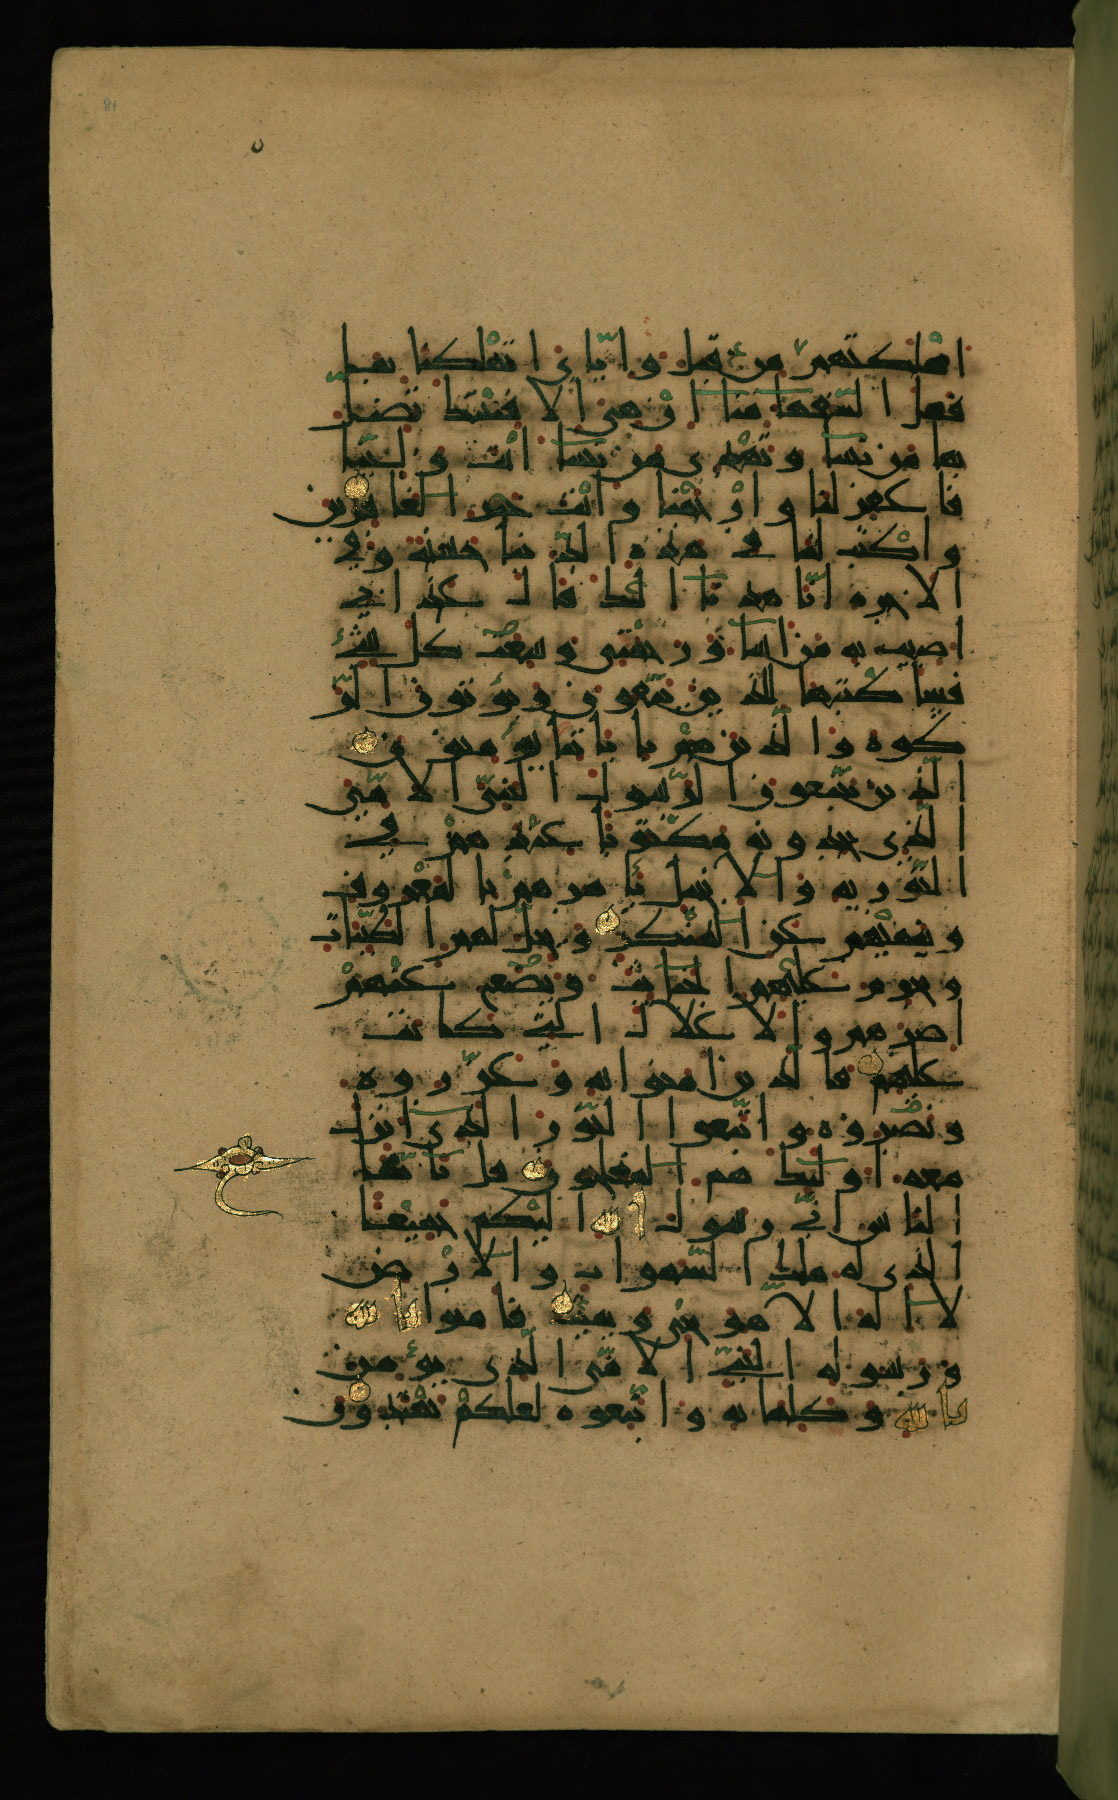 اهلكتهم من قبل و ايا ي ا تهلكنا بما
فعل ا لسفها منا ا ن هي ا لا فتنتك تضل
بها من تشا و تهد ي من تشا ا نت و لينا
فا غفر لنا و ا ر حمنا و ا نت خير ا لغا فرين
و ا كتب لنا في هذ ه ا لد نيا حسنة و في
ا لا خره ا نا هد نا ا ليك قا ل عذ ا بي
ا صيب به من ا شا و ر حمتي و سعت كل شي
فسا كتبها للذ ين يتقو ن و يو تو ن ا لز
كوه و ا لذ ين هم با يا تنا يو منو ن
ا لذ ين يتبعو ن ا لر سو ل ا لنبي ا لا مي
ا لذ ي يجد و نه مكتو با عند هم في
ا لتو ر يه و ا لا نجيل يا مر هم با لمعرو ف
و ينهيهم عن ا لمنكر و يحل لهم ا لطيبات
و يحر م عليهم ا لخبا يث و يضع عنهم
ا صر هم و ا لا غلا ل ا لتي كا نت
عليهم فا لذ ين ا منو ا به و عز ر و ه
و نصر و ه و ا تبعو ا ا لنو ر ا لذ ي ا نز ل
معه ا و ليك هم ا لمفلحو ن قل يا يها
ا لنا س ا ني ر سو ل ا لله ا ليكم جميعا
ا لذ ي له ملك ا لسمو ا ت و ا لا ر ض
لا ا له ا لا هو يحيي و يميت فا منو ا با لله
و ر سو له ا لنبي ا لا مي ا لذ ي يو من
با لله و كلما ته و ا تبعو ه لعلكم تهتد و ن